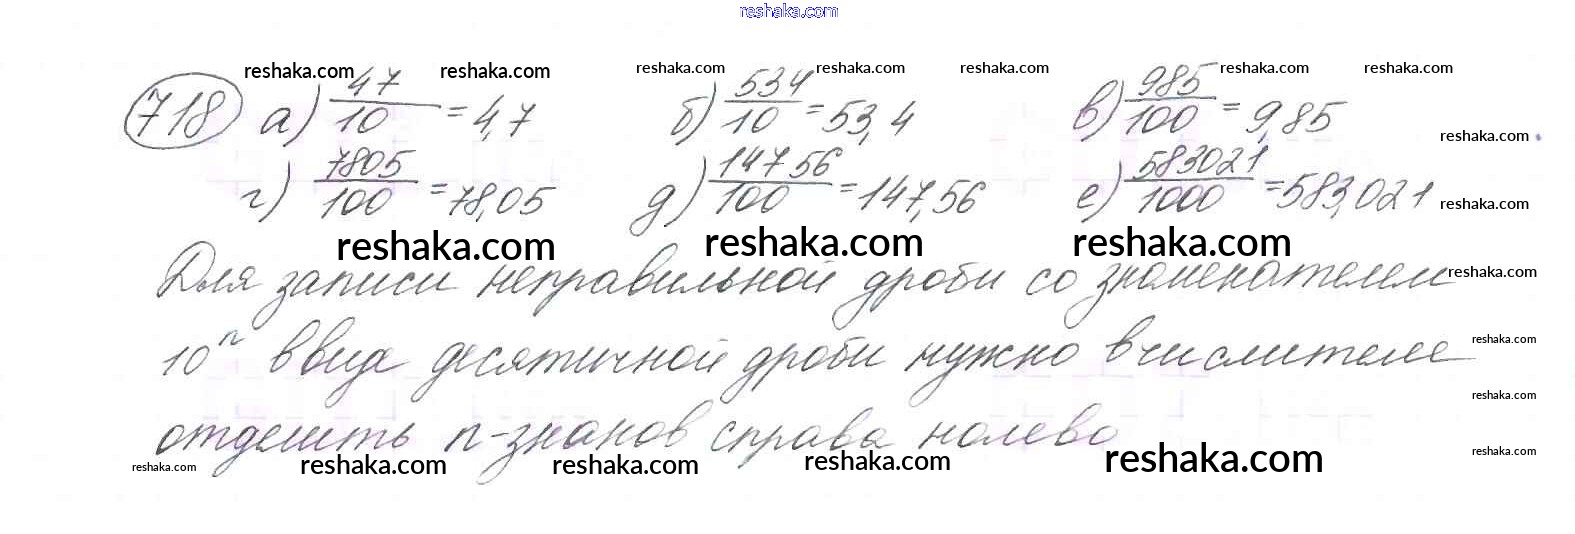 reshaka.com
reshaka.com reshaka.com reshaka.com reshaka.com reshaka.com reshaka.com reshaka.com
718 а) 47/10 = 4,7 б) 534/10 = 53,4 в) 985/100 = 9,85
reshaka.com
г) 7805/100 = 78,05 д) 14756/100 = 147,56 е) 583021/1000 = 583,021
reshaka.com
reshaka.com reshaka.com reshaka.com
Для записи неправильной дроби со знаменателем
reshaka.com
10ⁿ в виде десятичной дроби нужно в числителе
reshaka.com
reshaka.com
отделить n-знаков справа налево
reshaka.com
reshaka.com reshaka.com reshaka.com reshaka.com reshaka.com